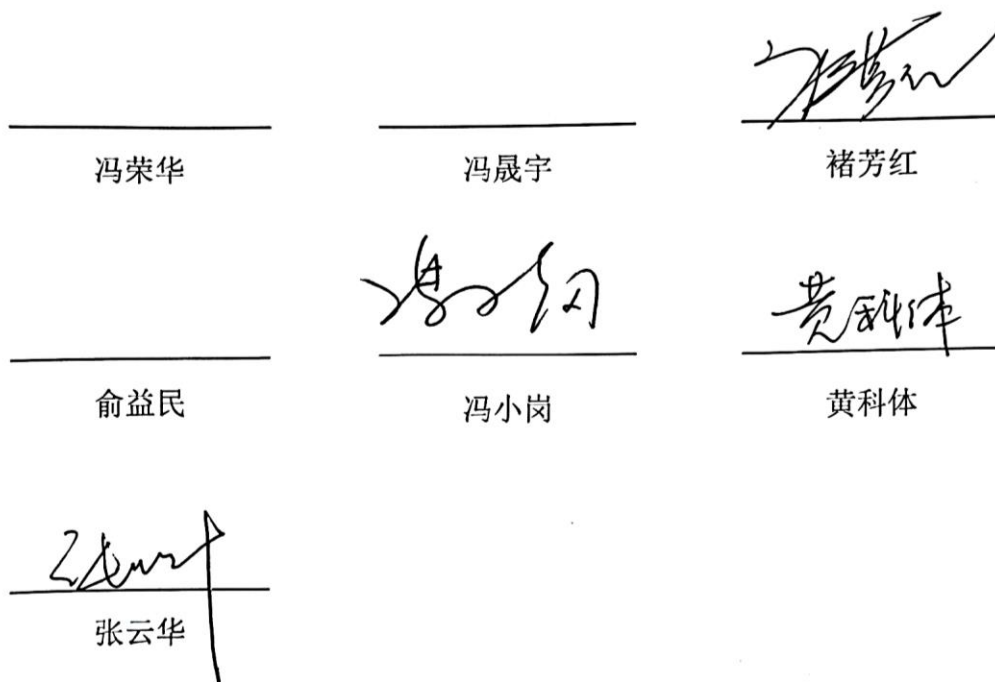 冯荣华 冯晟宇 褚芳红
黄科体
俞益民 冯小岗 黄科体
张云华